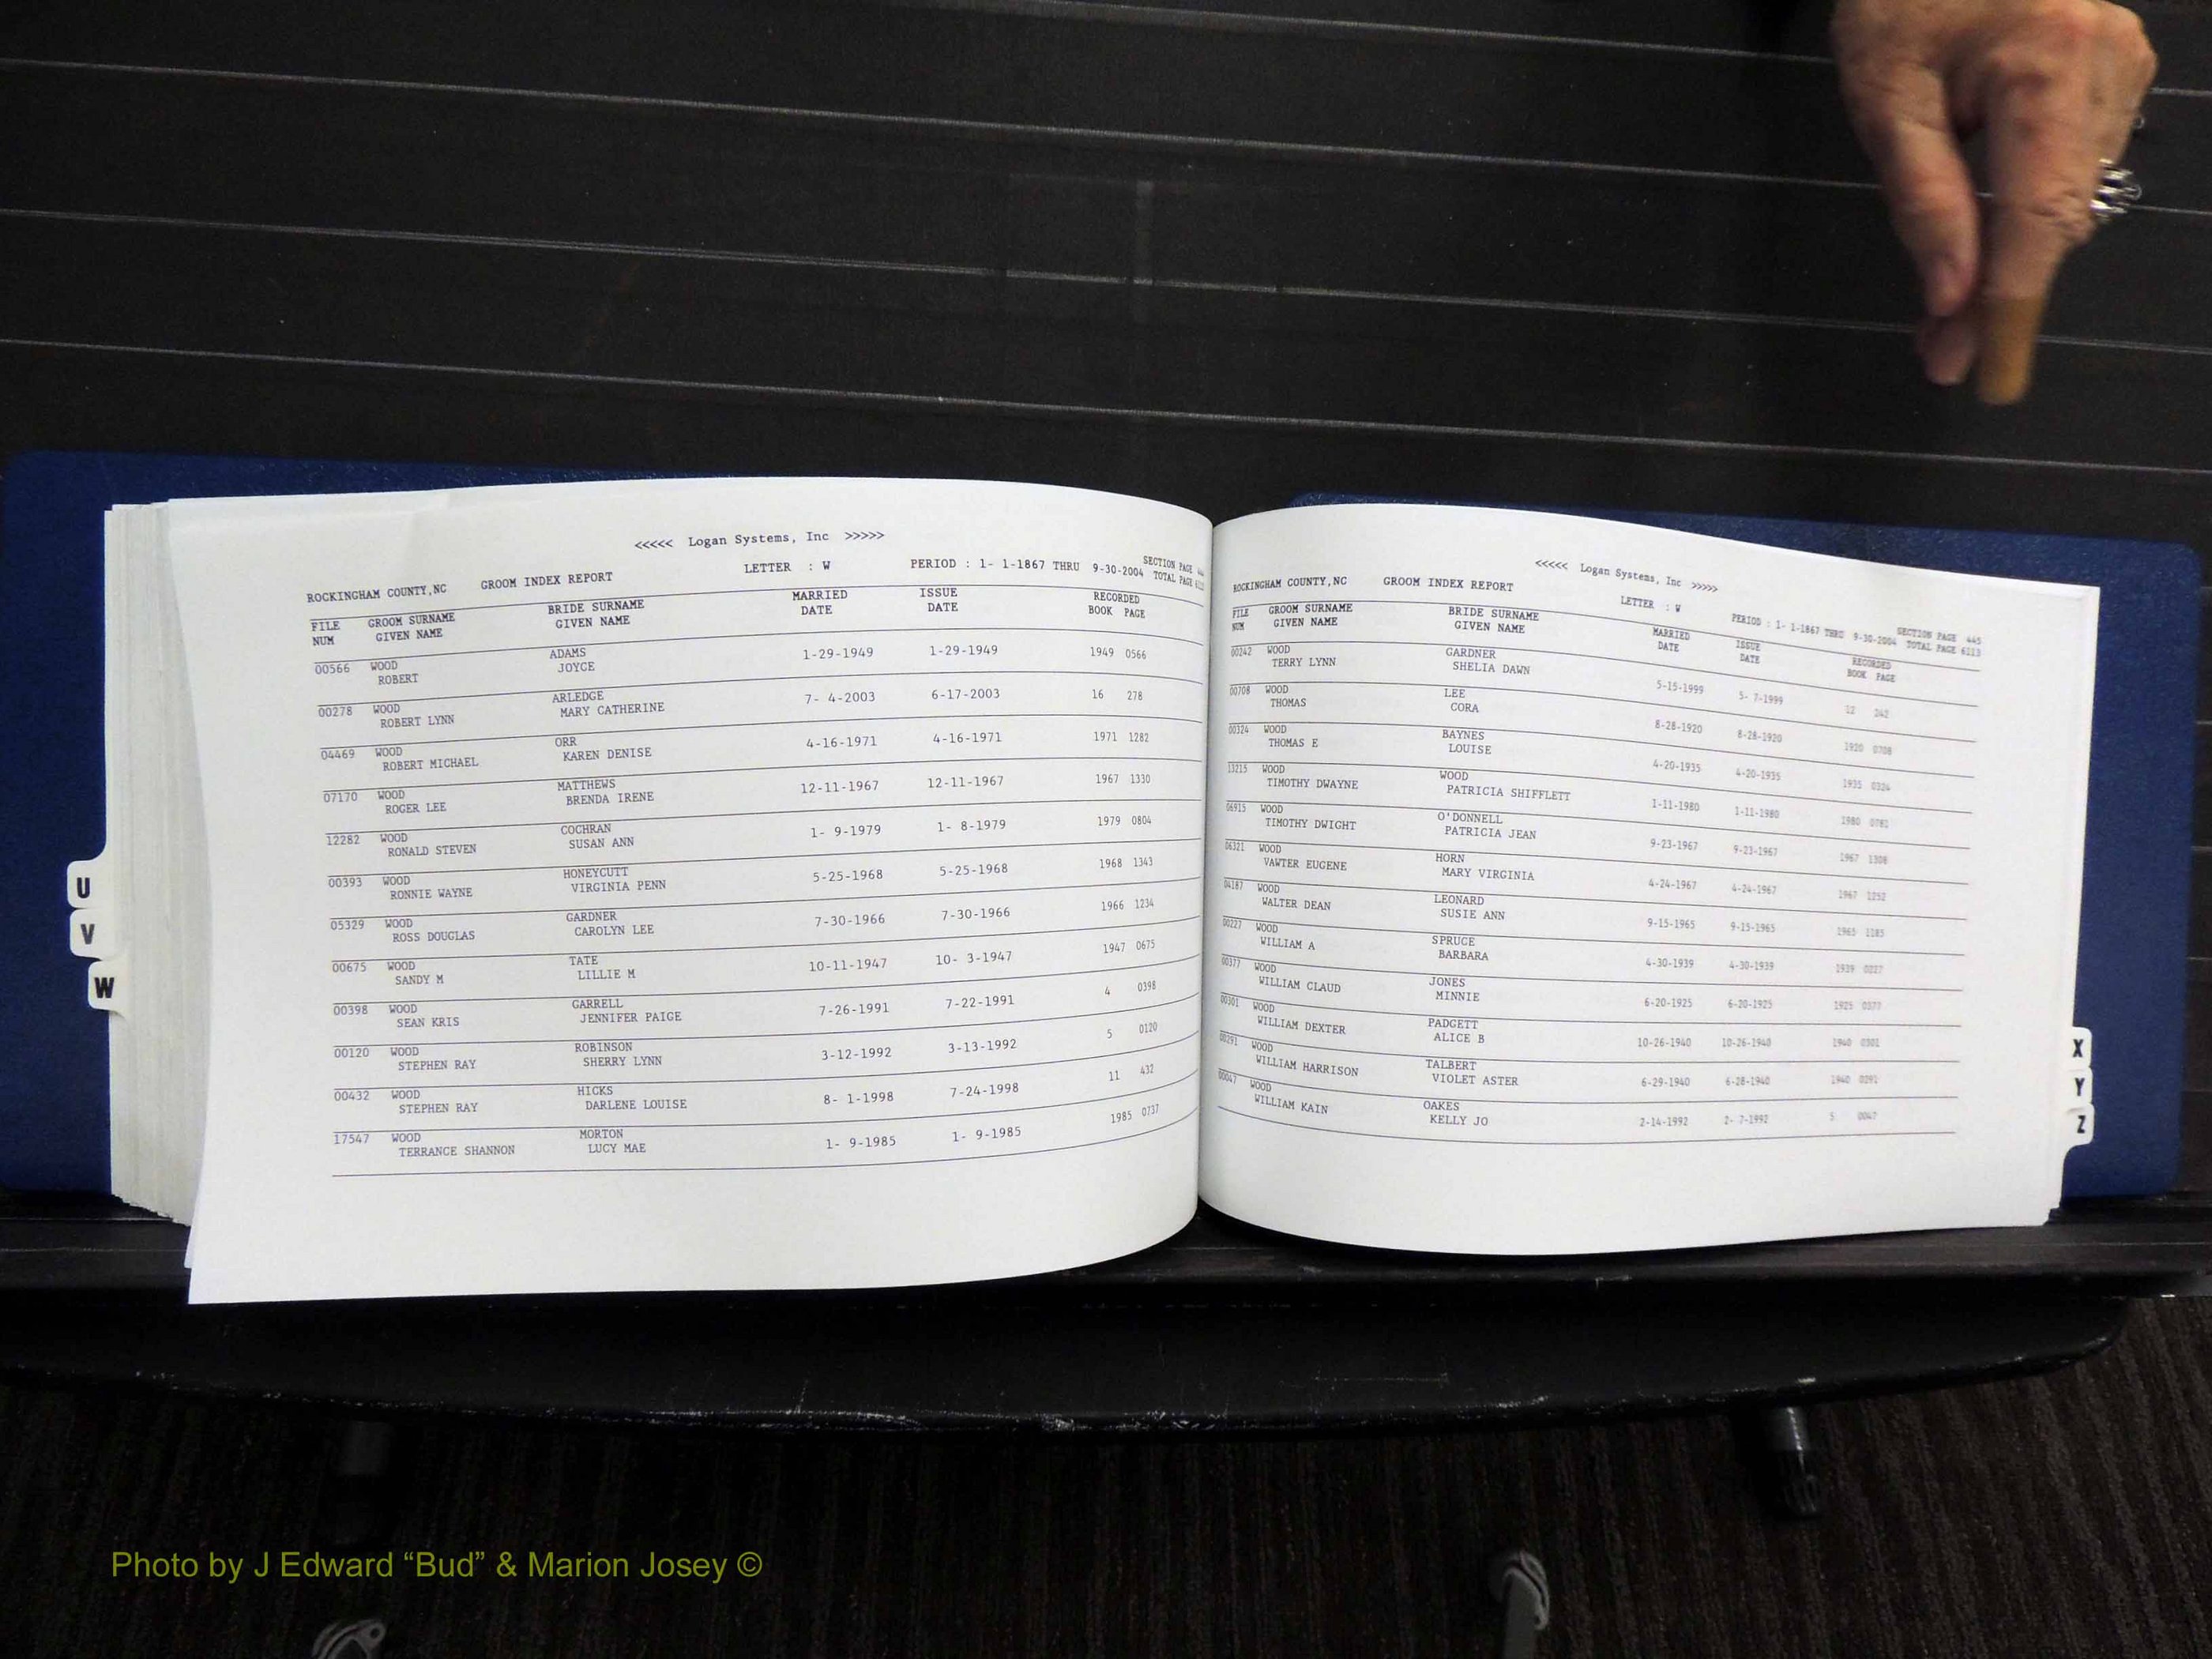 <<<<< Logan Systems, Inc >>>>>
ROCKINGHAM COUNTY,NC GROOM INDEX REPORT LETTER : W PERIOD : 1- 1-1867 THRU 9-30-2004 SECTION PAGE
TOTAL PAGE
FILE GROOM SURNAME BRIDE SURNAME MARRIED ISSUE RECORDED
NUM GIVEN NAME GIVEN NAME DATE DATE BOOK PAGE
00566 WOOD ADAMS 1-29-1949 1-29-1949 1949 0566
ROBERT JOYCE
00278 WOOD ARLEDGE 7- 4-2003 6-17-2003 16 278
ROBERT LYNN MARY CATHERINE
04469 WOOD ORR 4-16-1971 4-16-1971 1971 1282
ROBERT MICHAEL KAREN DENISE
07170 WOOD MATTHEWS 12-11-1967 12-11-1967 1967 1330
ROGER LEE BRENDA IRENE
12282 WOOD COCHRAN 1- 9-1979 1- 8-1979 1979 0804
RONALD STEVEN SUSAN ANN
00393 WOOD HONEYCUTT 5-25-1968 5-25-1968 1968 1343
RONNIE WAYNE VIRGINIA PENN
05329 WOOD GARDNER 7-30-1966 7-30-1966 1966 1234
ROSS DOUGLAS CAROLYN LEE
00675 WOOD TATE 10-11-1947 10- 3-1947 1947 0675
SANDY M LILLIE M
00398 WOOD GARRELL 7-26-1991 7-22-1991 4 0398
SEAN KRIS JENNIFER PAIGE
00120 WOOD ROBINSON 3-12-1992 3-13-1992 5 0120
STEPHEN RAY SHERRY LYNN
00432 WOOD HICKS 8- 1-1998 7-24-1998 11 432
STEPHEN RAY DARLENE LOUISE
17547 WOOD MORTON 1- 9-1985 1- 9-1985 1985 0737
TERRANCE SHANNON LUCY MAE
U
V
W
<<<<< Logan Systems, Inc >>>>>
ROCKINGHAM COUNTY,NC GROOM INDEX REPORT LETTER : W PERIOD : 1- 1-1867 THRU 9-30-2004 SECTION PAGE 445
TOTAL PAGE 6113
FILE GROOM SURNAME BRIDE SURNAME MARRIED ISSUE RECORDED
NUM GIVEN NAME GIVEN NAME DATE DATE BOOK PAGE
00242 WOOD GARDNER 5-15-1999 5- 7-1999 12 242
TERRY LYNN SHELIA DAWN
00708 WOOD LEE 8-28-1920 8-28-1920 1920 0708
THOMAS CORA
00324 WOOD BAYNES 4-20-1935 4-20-1935 1935 0324
THOMAS E LOUISE
13215 WOOD WOOD 1-11-1980 1-11-1980 1980
TIMOTHY DWAYNE PATRICIA SHIFFLETT
06915 WOOD O'DONNELL 9-23-1967 9-23-1967 1967 1308
TIMOTHY DWIGHT PATRICIA JEAN
06321 WOOD HORN 4-24-1967 4-24-1967 1967 1252
VAWTER EUGENE MARY VIRGINIA
04187 WOOD LEONARD 9-15-1965 9-15-1965 1965 1185
WALTER DEAN SUSIE ANN
00227 WOOD SPRUCE 4-30-1939 4-30-1939 1939 0227
WILLIAM A BARBARA
00377 WOOD JONES 6-20-1925 6-20-1925 1925 0377
WILLIAM CLAUD MINNIE
00301 WOOD PADGETT 10-26-1940 10-26-1940 1940 0301
WILLIAM DEXTER ALICE B
00291 WOOD TALBERT 6-29-1940 6-28-1940 1940 0291
WILLIAM HARRISON VIOLET ASTER
00047 WOOD OAKES 2-14-1992 2- 7-1992 5 0047
WILLIAM KAIN KELLY JO
X
Y
Z
Photo by J Edward “Bud” & Marion Josey ©